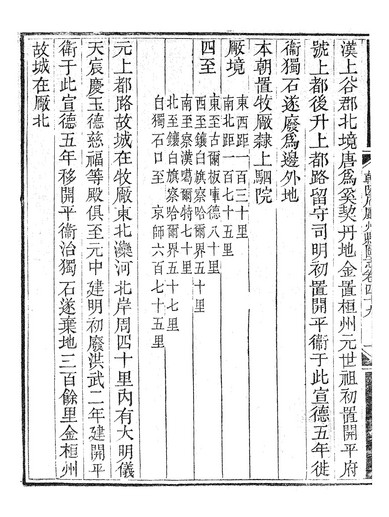 漢上谷郡北境唐為奚契丹地金置桓州元世祖初置開平府
號上都後升上都路留守司明初置開平衛于此宣德五年徙
衛獨石遂廢為邊外地
本朝置牧厰隸上駟院
厰境
東西距一百三十里
南北距一百七十五里
四至
東至古爾板庫德八十里
西至鑲白旗察哈爾界五十里
南至察漢葛爾特七十里
北至鑲白旗察哈爾界五十七里
自獨石口至 京師六百七十五里
元上都路故城在牧厰東北灤河北岸周四十里內有大明儀
天宸慶玉德慈福等殿俱至元中建明初廢洪武二年建開平
衛于此宣德五年移開平衛治獨石遂棄地三百餘里金桓州
故城在厰北